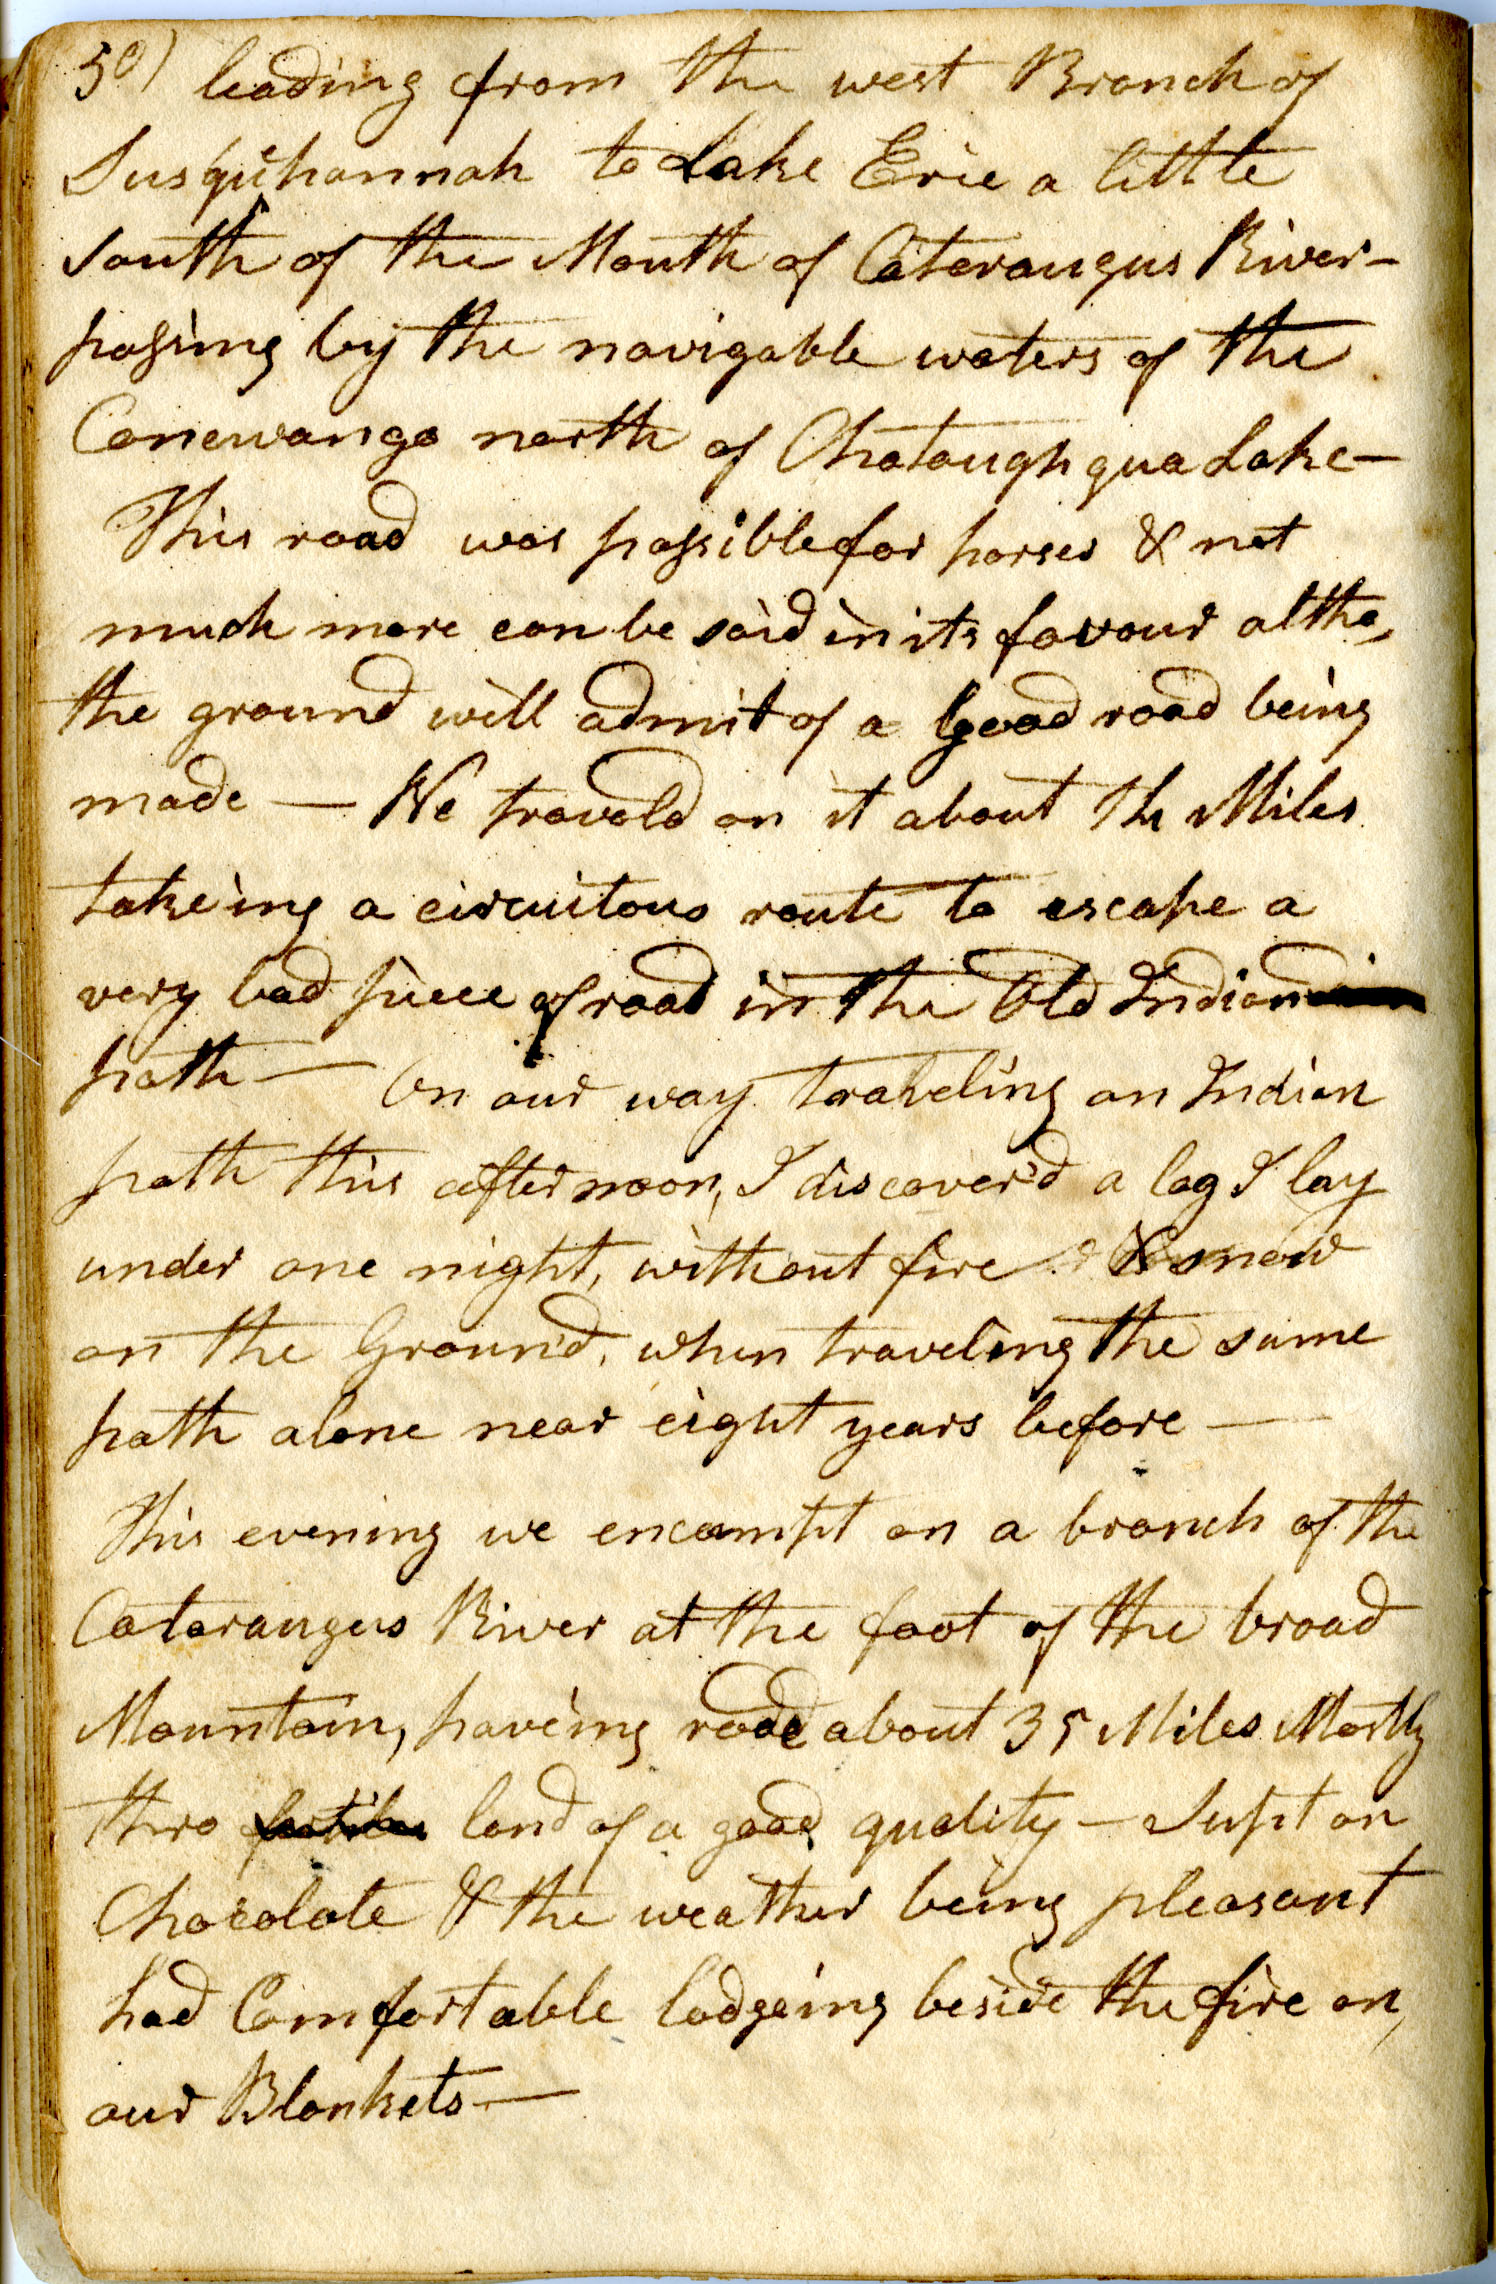 50) leading from the west Branch of
Susquehannah to Lake Erie a little
south of the Mouth of Cateraugus River—
passing by the navigable waters of the
Conewango north of Chataughqua Lake—
This road was passible for horses & not
much more can be said in its favour altho,
the ground will admit of a Good road being
made — We traveld on it about Miles
takeing a circuitous route to escape a
very bad piece of road in the Old Indian
path — On our way traveling an Indian
path this afternoon, I discover'd a log I lay
under one night, without fire & snow
on the Ground, when traveling the same
path alone near eight years before —
This evening we encampt on a branch of the
Cataraugus River at the foot of the broad
Mountain, haveing rode about 35 Miles Mostly
thro land of a good quality — Supt on
Chocolate & the weather being pleasant
had Comfortable lodgeing beside the fire on,
our Blankets —